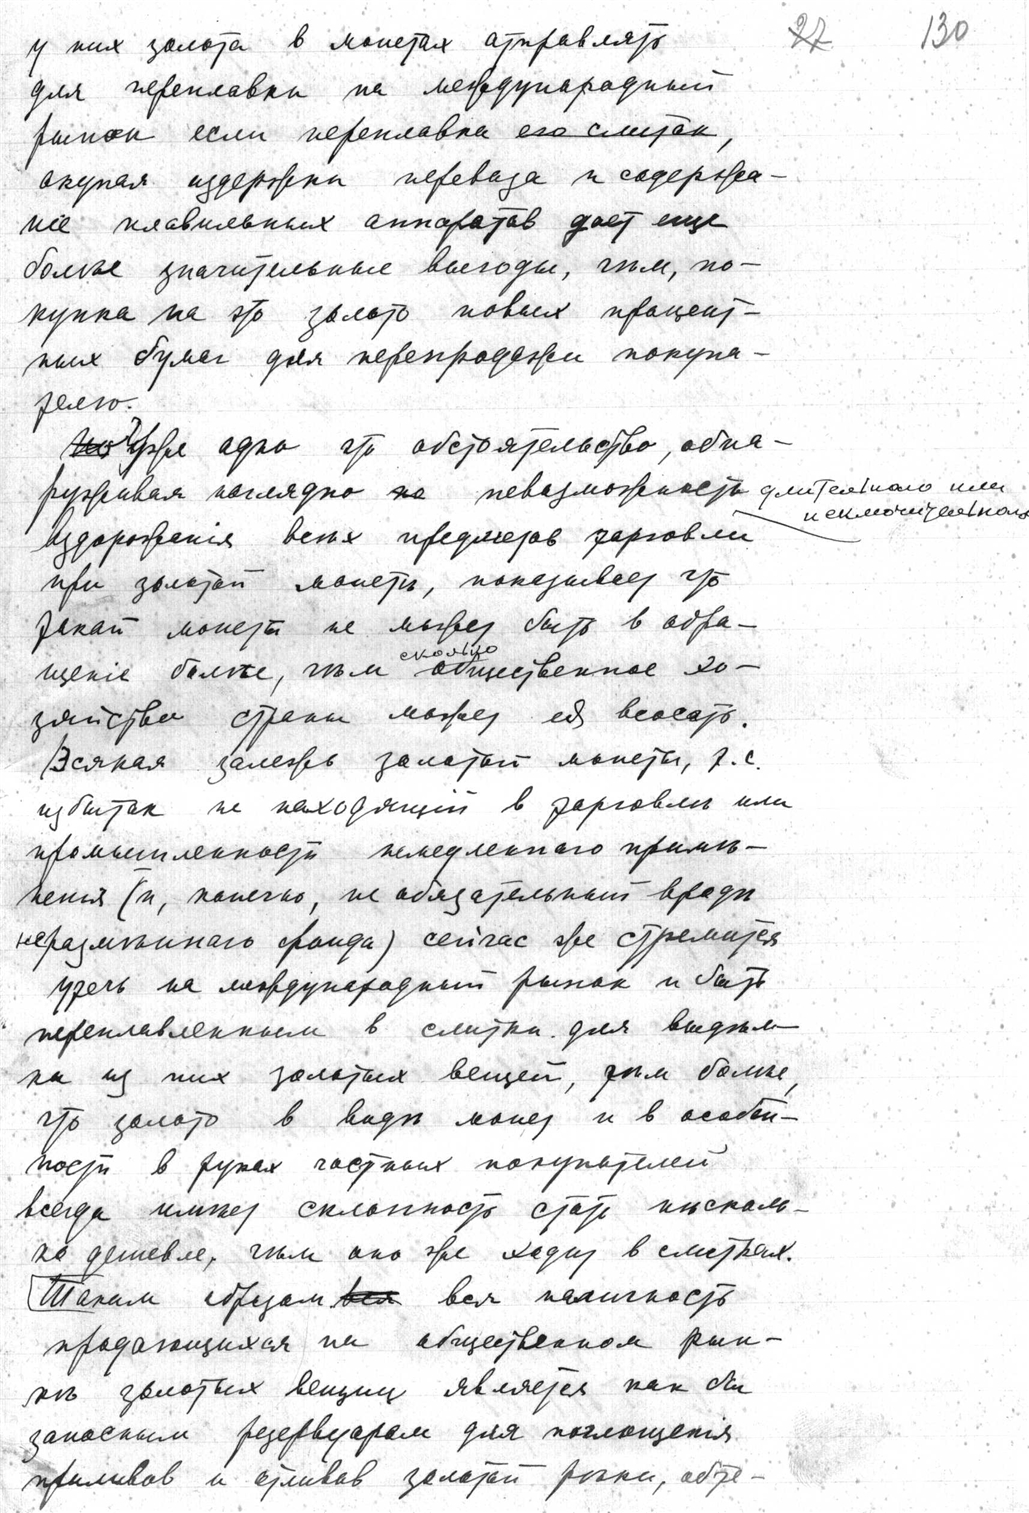 27 130
у них золота в монетах отправлять
для переплавки на международный
рынок если переплавка его слиток,
окупая издержки перевоза и содержа-
ніе плавильных аппаратов дает еще
болѣе значительные выгоды, чѣм, по-
купка на это золото новых процент-
ных бумаг для перепродажи покупа-
телю.
Но Уже одно это обстоятельство, обна-
руживая наглядно невозможность длительного или
исключительного
вздорожанія всѣх предметов торговли
при золотой монетѣ, показывает что
такой монеты не может быть в обра-
щеніе болѣе, чѣм сколько общественное хо-
зяйство страны может ея всосать.
Всякая залежь золотой монеты, т.е.
избыток не находящій в торговлѣ или
промышленности немедленнаго примѣ-
ненія (и, конечно, не обязательный вродѣ
неразмѣннаго фонда) сейчас же стремится
утечь на международный рынок и быть
переплавленным в слитки для выдѣл-
ки из них золотых вещей, тѣм болѣе,
что золото в видѣ монет и в особен-
ности в руках частных покупателей
всегда имѣет склонность стать нѣсколь-
ко дешевле, чѣм оно же ходит в слитках.
Таким образом вся вся наличность
продающихся на общественном рын-
кѣ золотых вещиц является как бы
запасным резервуаром для поглощенія
приливов и отливов золотой рѣки, обте-